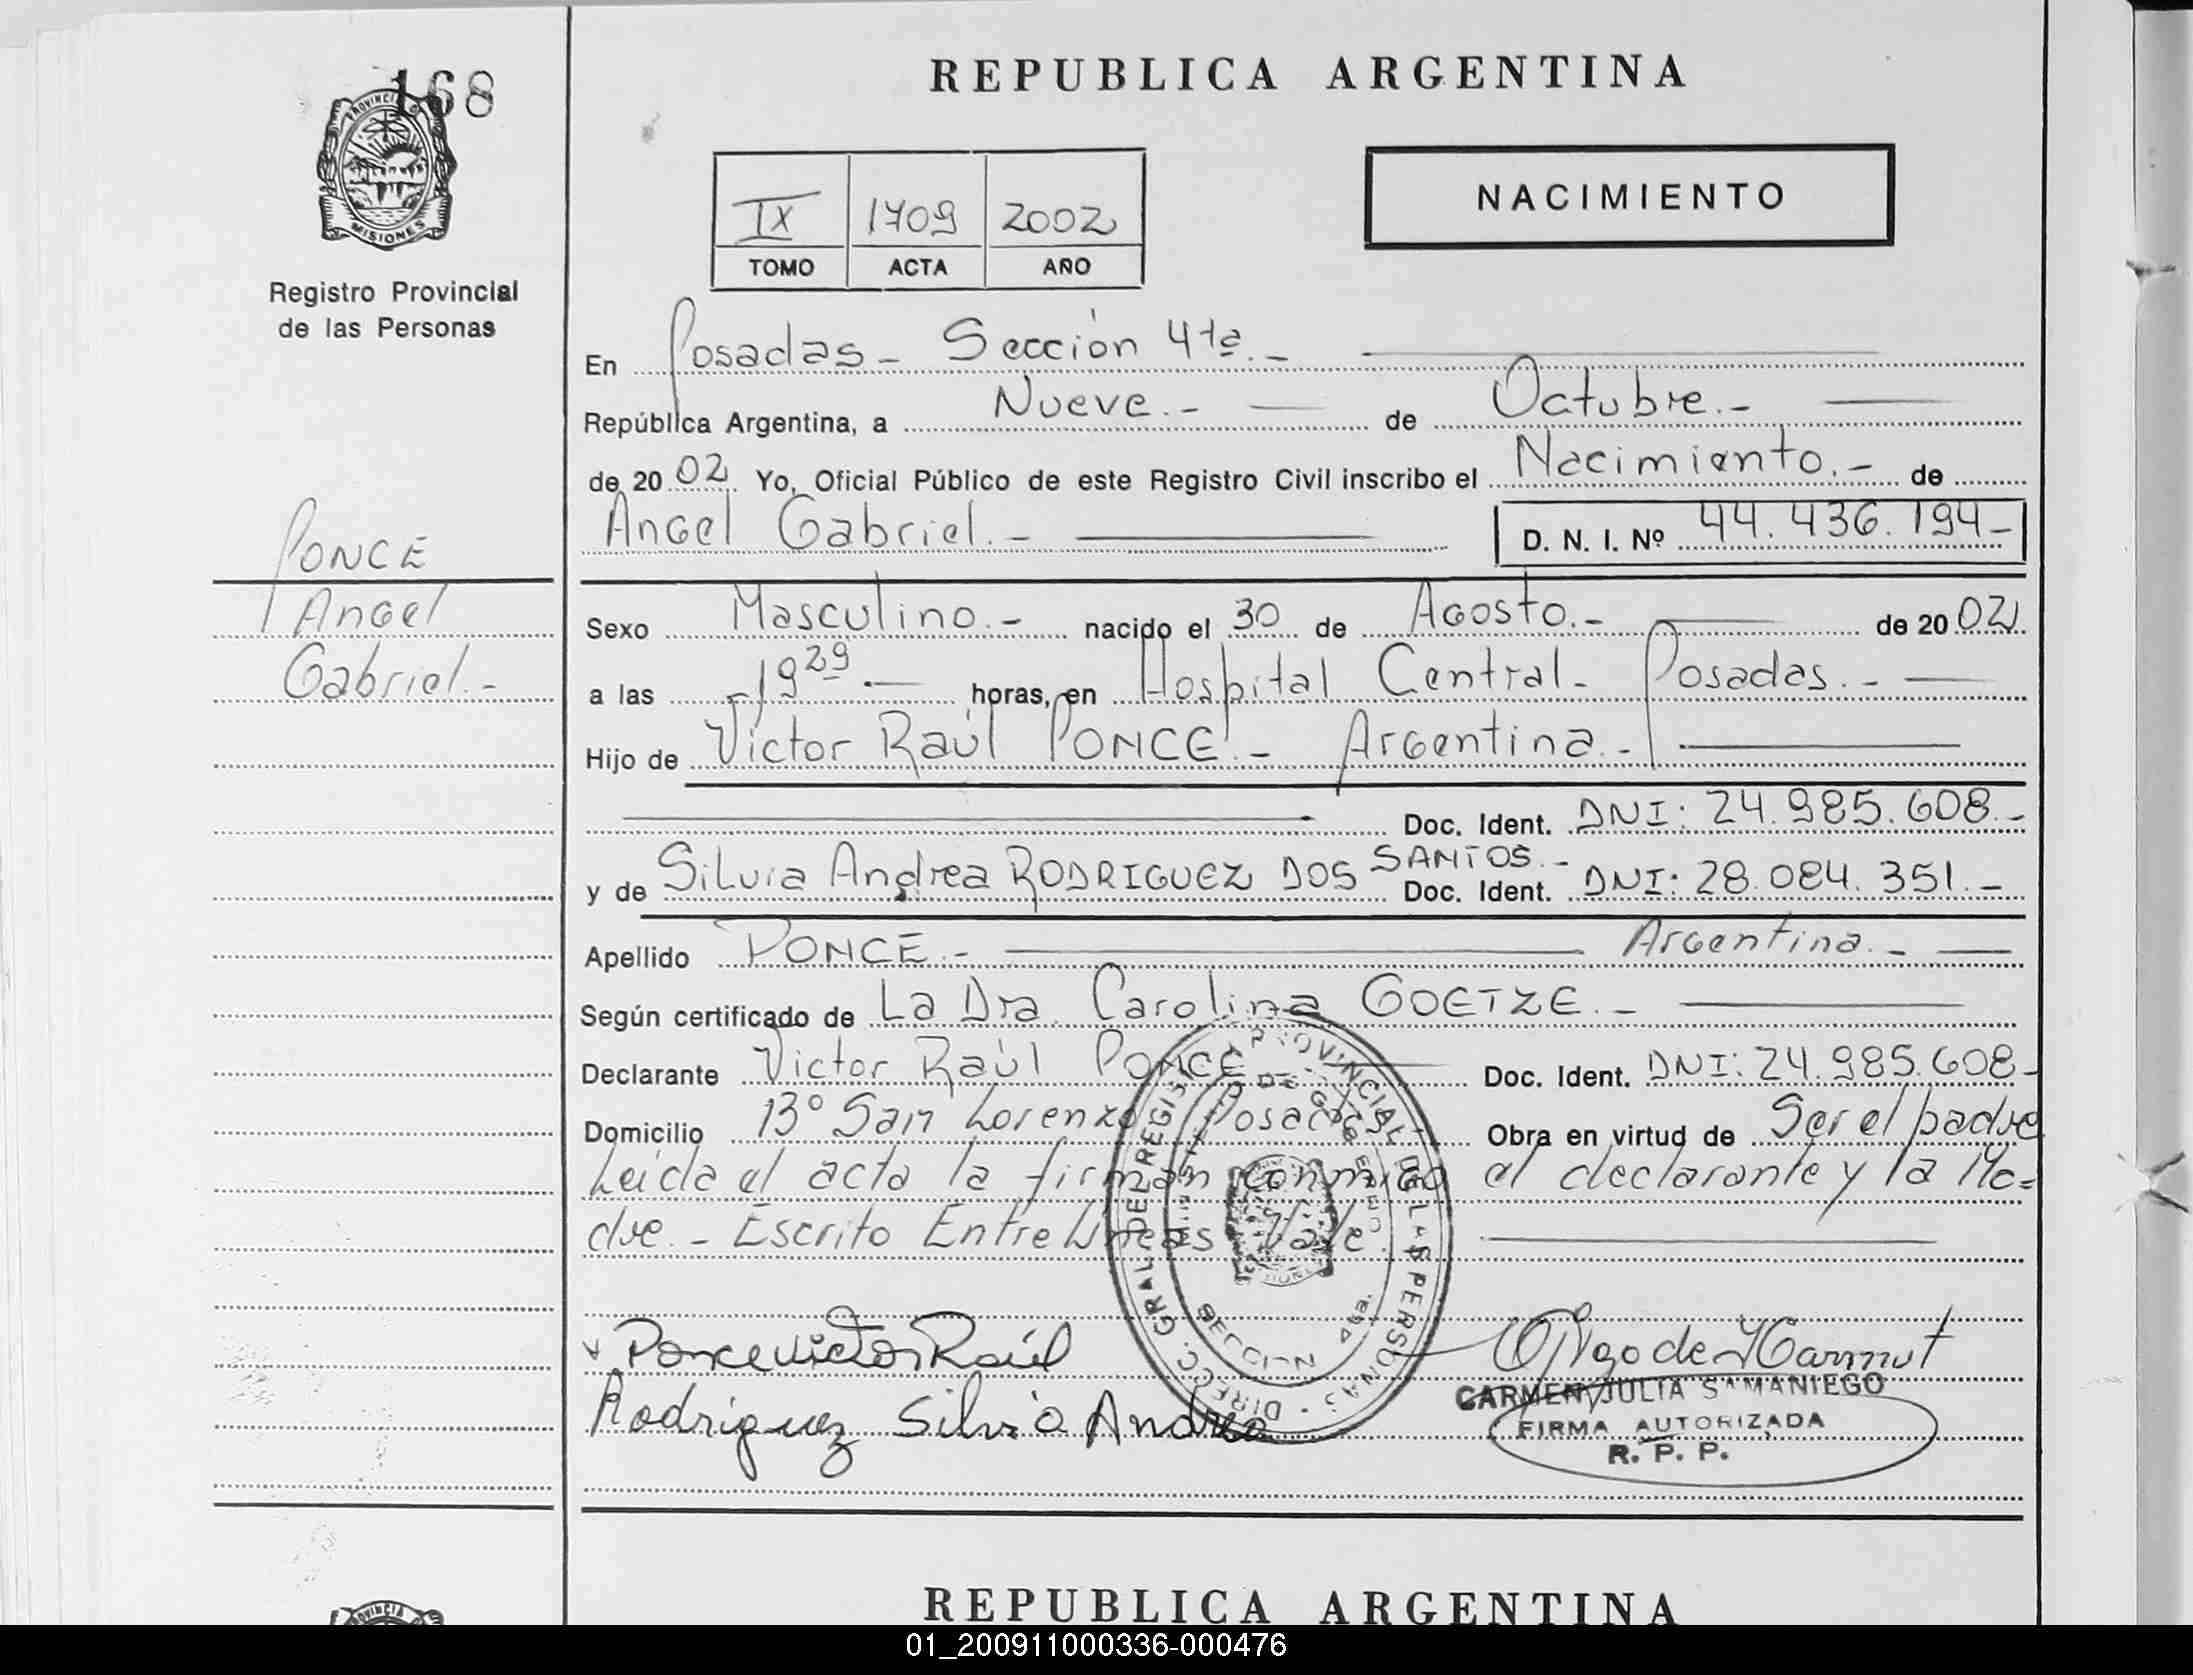 168
PROVINCIA DE
MISIONES
Registro Provincial
de las Personas
PONCE
Angel
Gabriel.-
REPUBLICA ARGENTINA
NACIMIENTO
IX 1709 2002
TOMO ACTA AÑO
En Posadas - Sección 4ta.-
República Argentina, a Nueve.- de Octubre.-
de 20 02 Yo, Oficial Público de este Registro Civil inscribo el Nacimiento.- de
Angel Gabriel.- D. N. I. Nº 44.436.194-
Sexo Masculino.- nacido el 30 de Agosto.- de 20 02
a las 19 29 horas, en Hospital Central - Posadas.-
Hijo de Victor Raúl PONCE.- Argentina.-
Doc. Ident. DNI: 24.985.608.-
y de Silvia Andrea RODRIGUEZ DOS SANTOS.- Doc. Ident. DNI: 28.084.351.-
Apellido PONCE.- Argentina.-
Según certificado de La Dra. Carolina GOETZE.-
Declarante Victor Raúl PONCE Doc. Ident. DNI: 24.985.608-
Domicilio 13º San Lorenzo Posadas Obra en virtud de Ser el padre
Leida el acta la firman conmigo el declarante y la Ma=
dre.- Escrito Entre lineas Vale.
DIRECC. GRAL. DEL REGISTRO PROVINCIAL DE LAS PERSONAS
SECCION 4ta.
Ponce Victor Raúl
Rodriguez Silvia Andrea
CARMEN JULIA SAMANIEGO
FIRMA AUTORIZADA
R. P. P.
PROVINCIA
REPUBLICA ARGENTINA
01_200911000336-000476